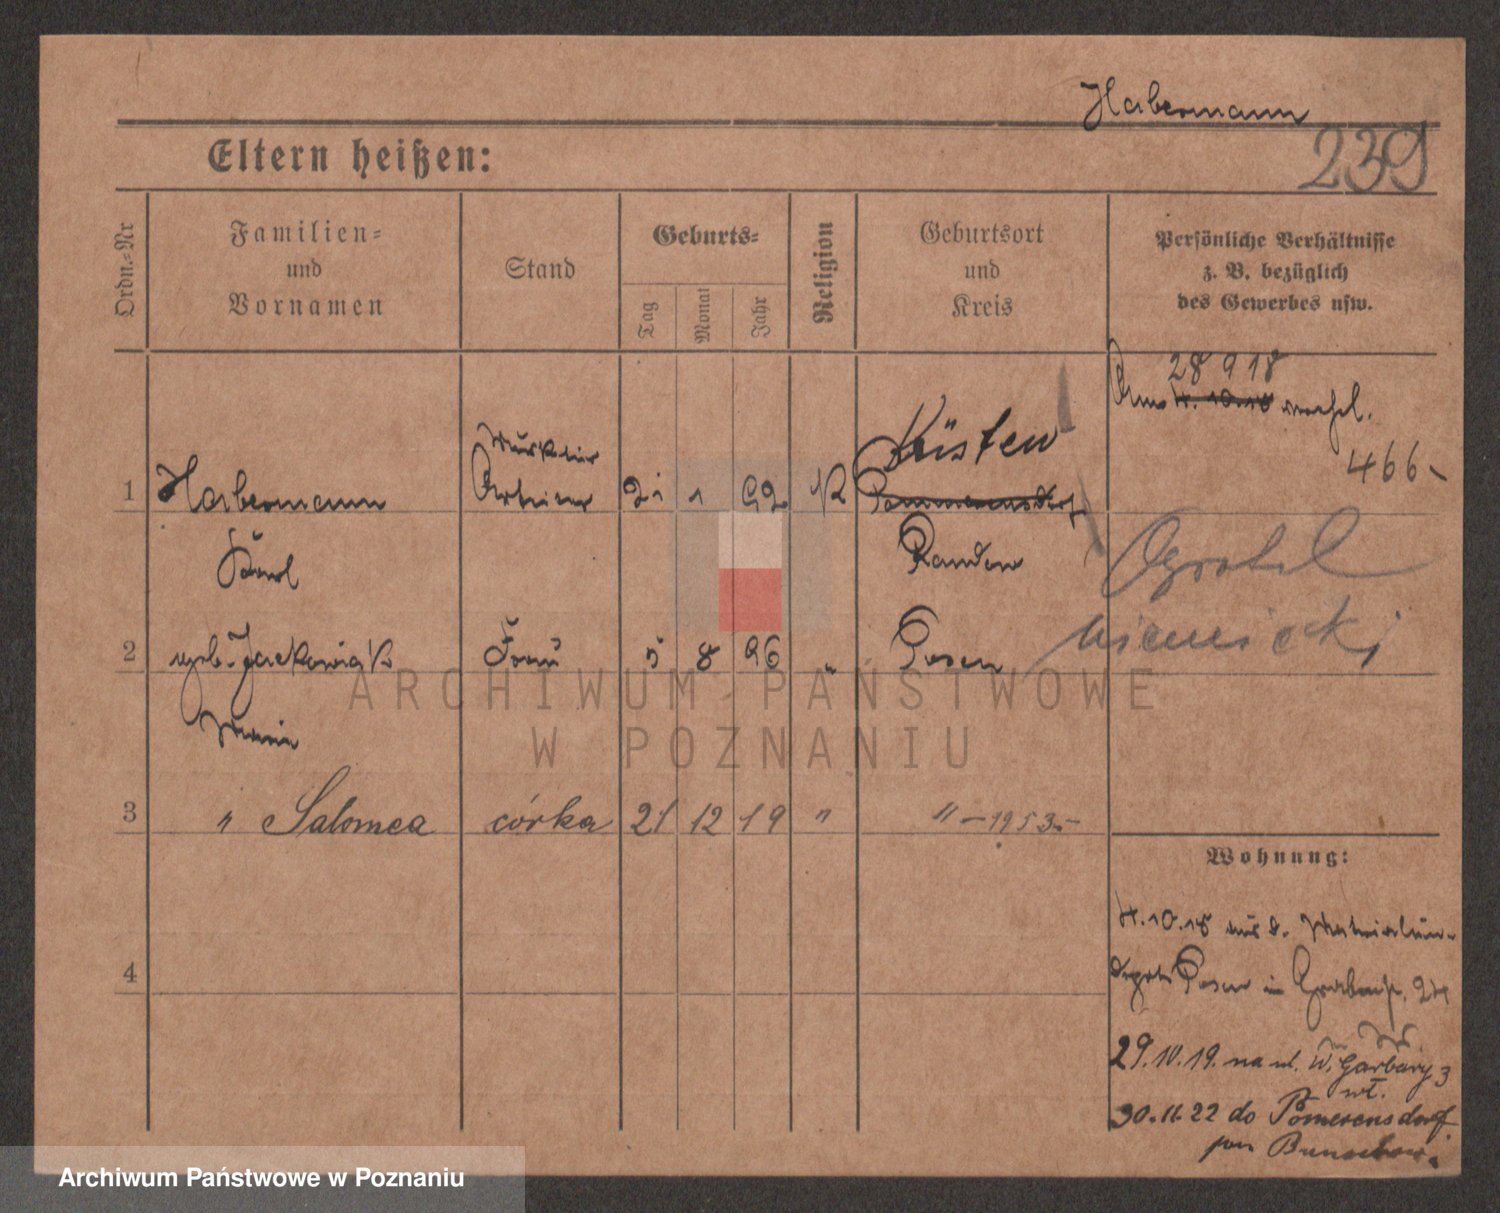 Habermann
239
Eltern heißen:
Ordn.-Nr
Familien-
und
Vornamen
Stand
Geburts-
Tag
Monat
Jahr
Religion
Geburtsort
und
Kreis
Persönliche Verhältnisse
z. B. bezüglich
des Gewerbes usw.
28 9 18
466
1
Habermann
Karl
Musketier
Arbeiter
21 1 92
K
Küsten
Pommerensdorf
Randow
Obywatel
niemiecki
2
geb. Jackowiak
Maria
Frau
5 8 96
"
Posen
3
" Salomea
córka
21 12 19
"
" -1953.-
4
Wohnung:
4.10.18 aus d.
Posen in Grabenstr. 24
29.10.19. na ul. W. Garbary 3
30.11.22 do Pomerensdorf
pow.
ARCHIWUM PAŃSTWOWE
W POZNANIU
Archiwum Państwowe w Poznaniu